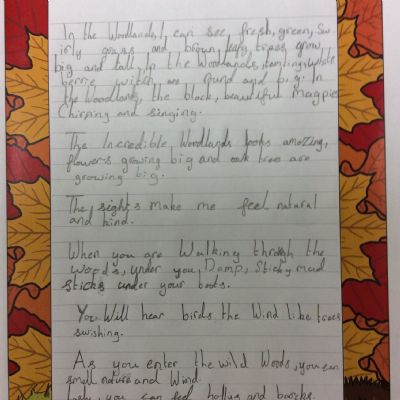 In the Woodlands, I can see, fresh, green, Sw
irly grass and brown, leafy trees grow
big and tall, In the Woodlands,
berrie witch are round and big. In
the Woodland, the black, beautiful Magpie
Chirping and singing.
The Incredible Woodlands looks amazing,
flowers growing big and oak tree are
growing big.
The sights make me feel natural
and kind.
When you are Walking through the
woods, Under you, Damp, Sticky mud
Sticks under your boots.
You Will hear birds the Wind like trees
swishing.
As you enter the wild Woods, you can
smell nature and Wind.
you can feel hollys and